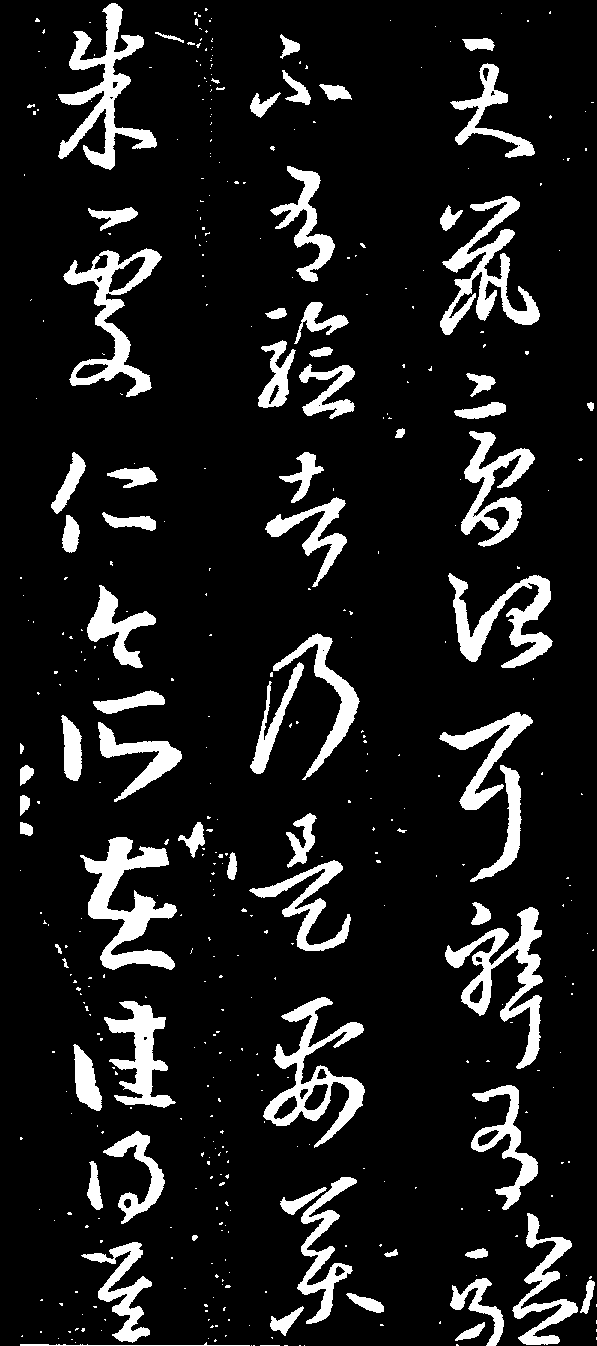 天鼠膏治耳聾有驗
不有驗者乃是要藥
朱處仁今所在往得其